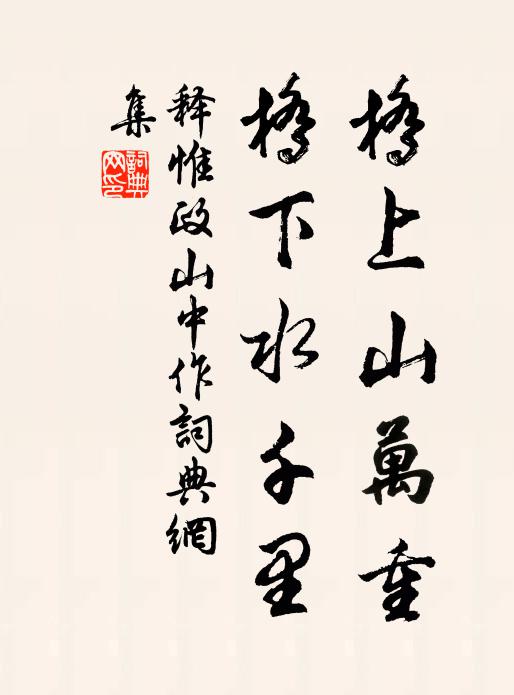 橋上山萬重
橋下水千里
释惟政山中作詞典網
集
詞典
网印